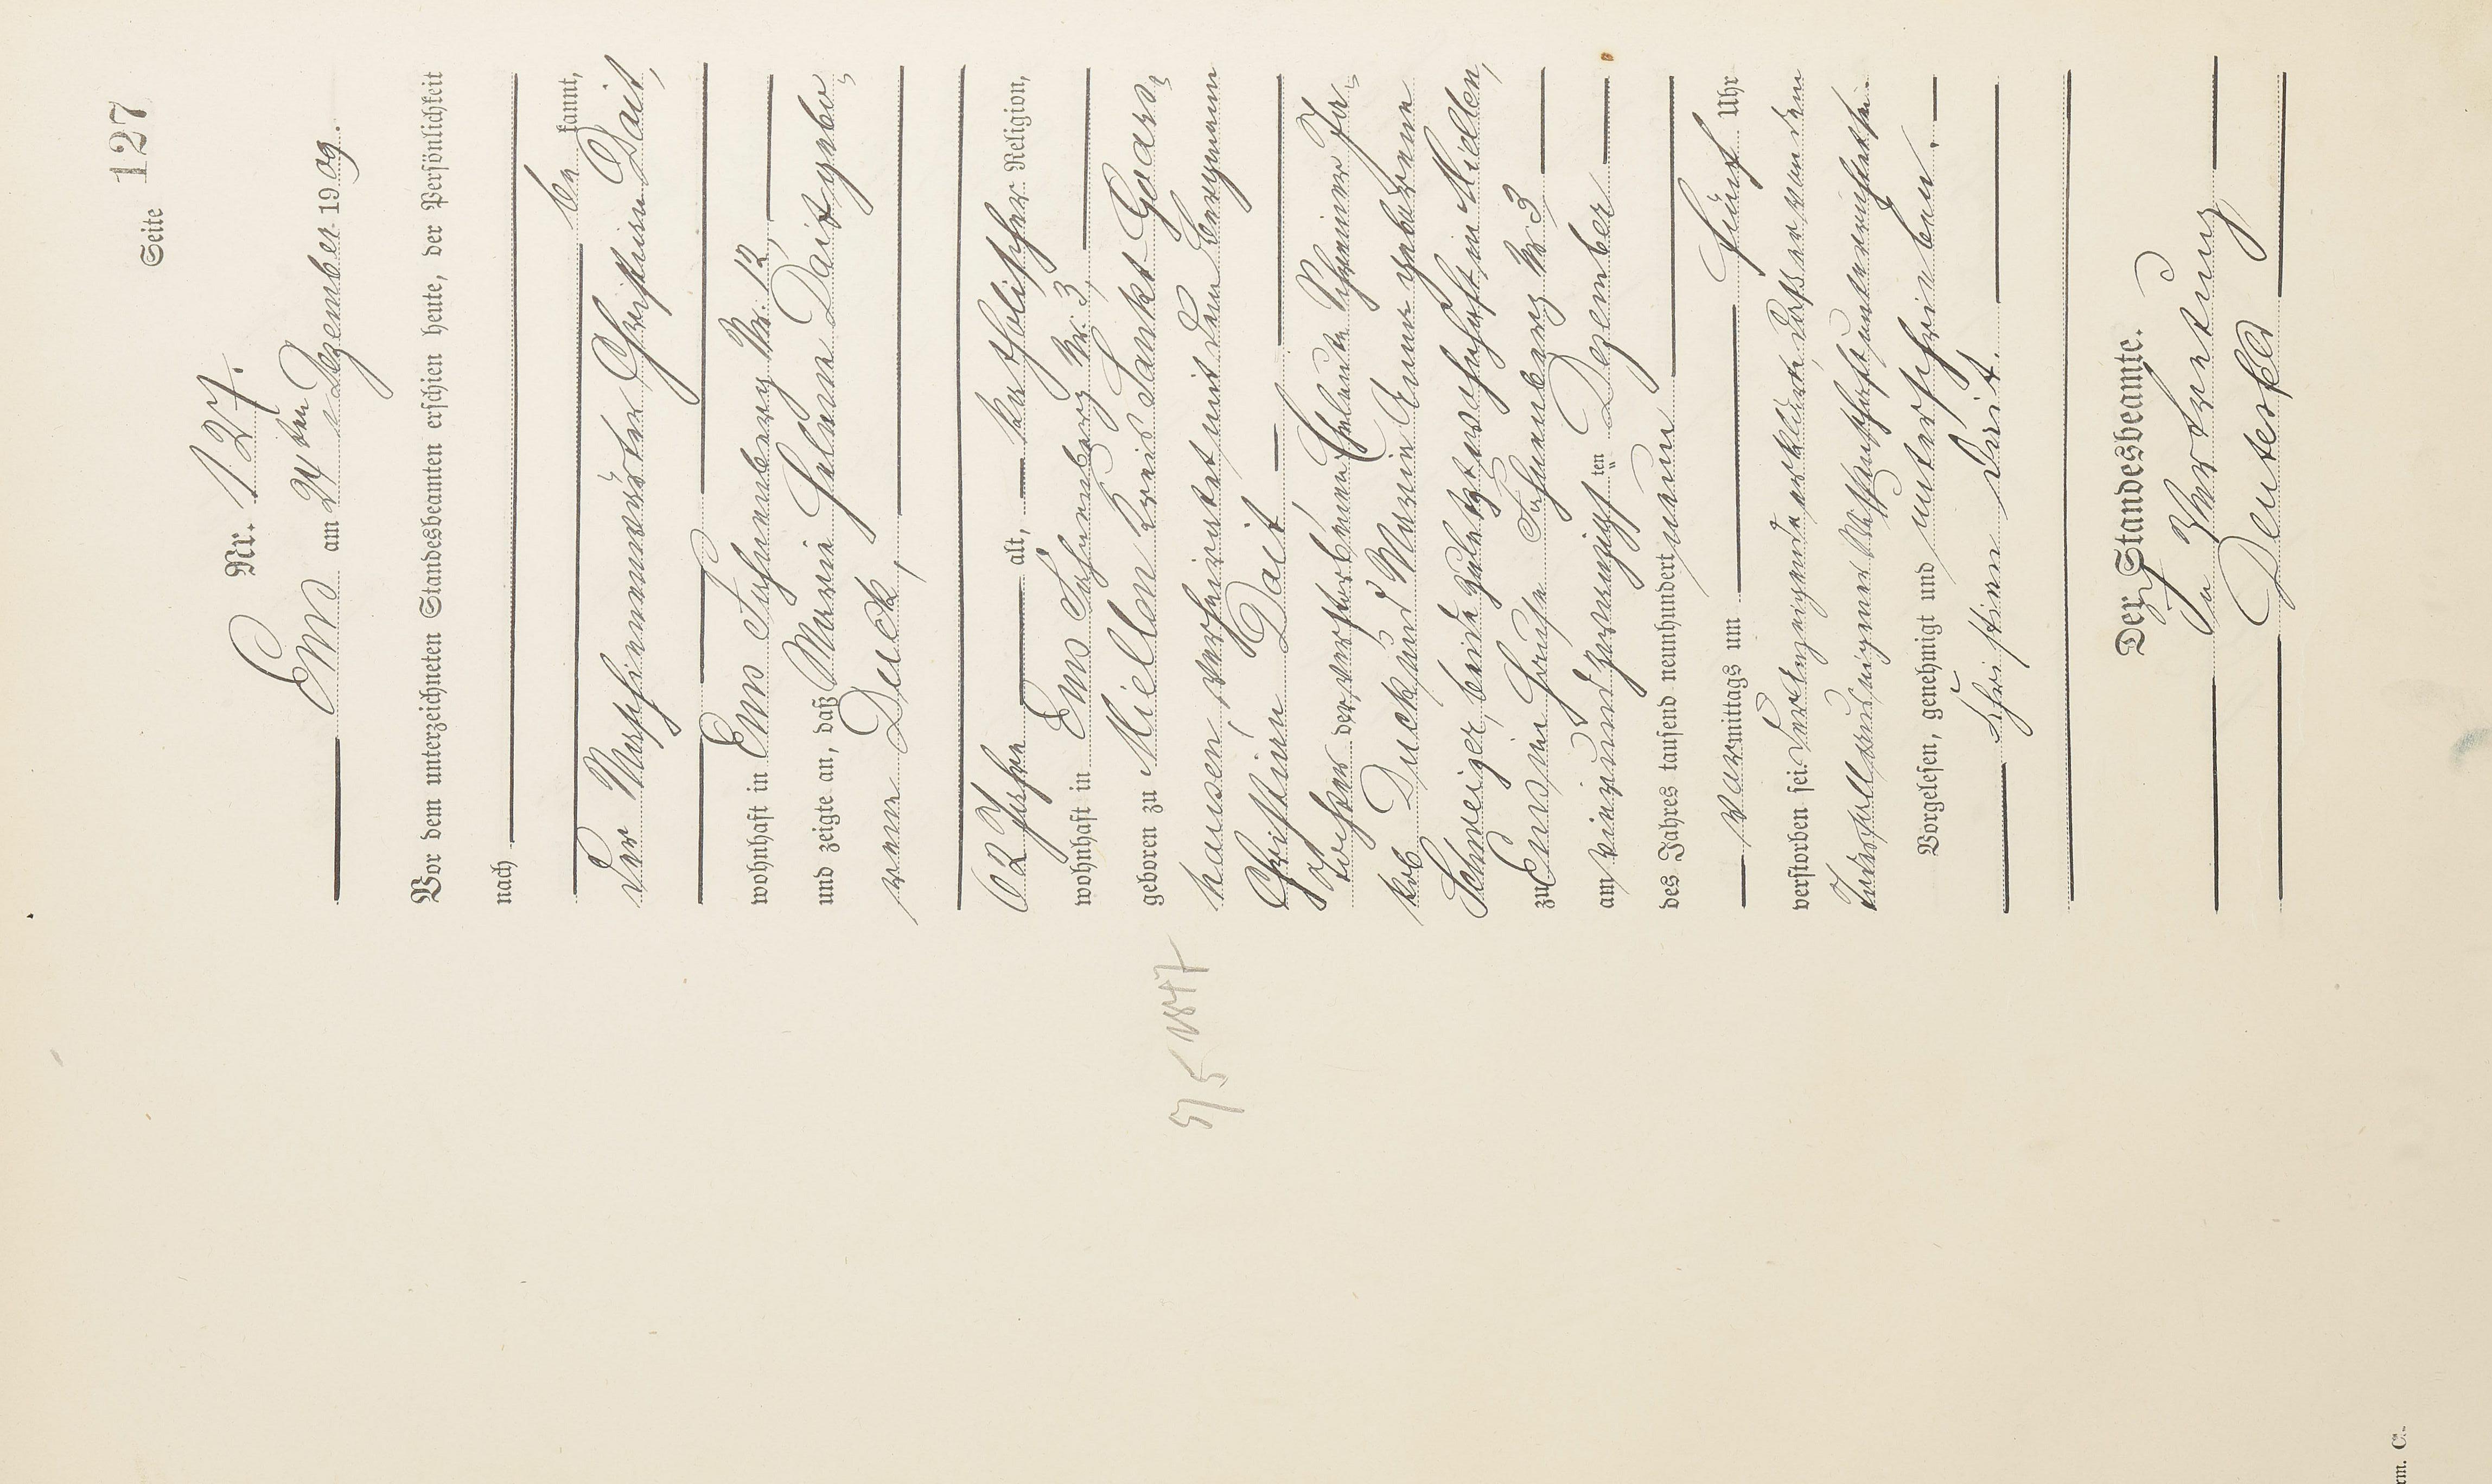 Seite 127
Nr. 127.
Ems am 24ten Dezember 1909.
Vor dem unterzeichneten Standesbeamten erschien heute, der Persönlichkeit
nach
be kannt,
der Maschinenwärter Christian Dait,
wohnhaft in Ems Nr. 12,
und zeigte an, daß Maria Helena Dait gebo-
rene Duck,
62 Jahre alt, katholischer Religion,
wohnhaft in Ems Nr. 3,
geboren zu Miellen Kreis Sankt Goars-
hausen, verheiratet mit dem Bergmann
Christian Dait,
Tochter der verstorbenen Eheleute Schreiner Ja-
kob Duck und Maria Anna geborene
Schweiger, beide zuletzt wohnhaft in Miellen,
zu Ems im Hause Nr 3
am vierundzwanzigsten Dezember
des Jahres tausend neunhundert neun
vormittags um fünf Uhr
verstorben sei. Der Anzeigende erklärte, daß er von dem
Todesfall aus eigener Wissenschaft unterrichtet sei.
Vorgelesen, genehmigt und unterschrieben.
Christian Dait.
Der Standesbeamte.
In Vertretung
9/5 1847
rm. C.